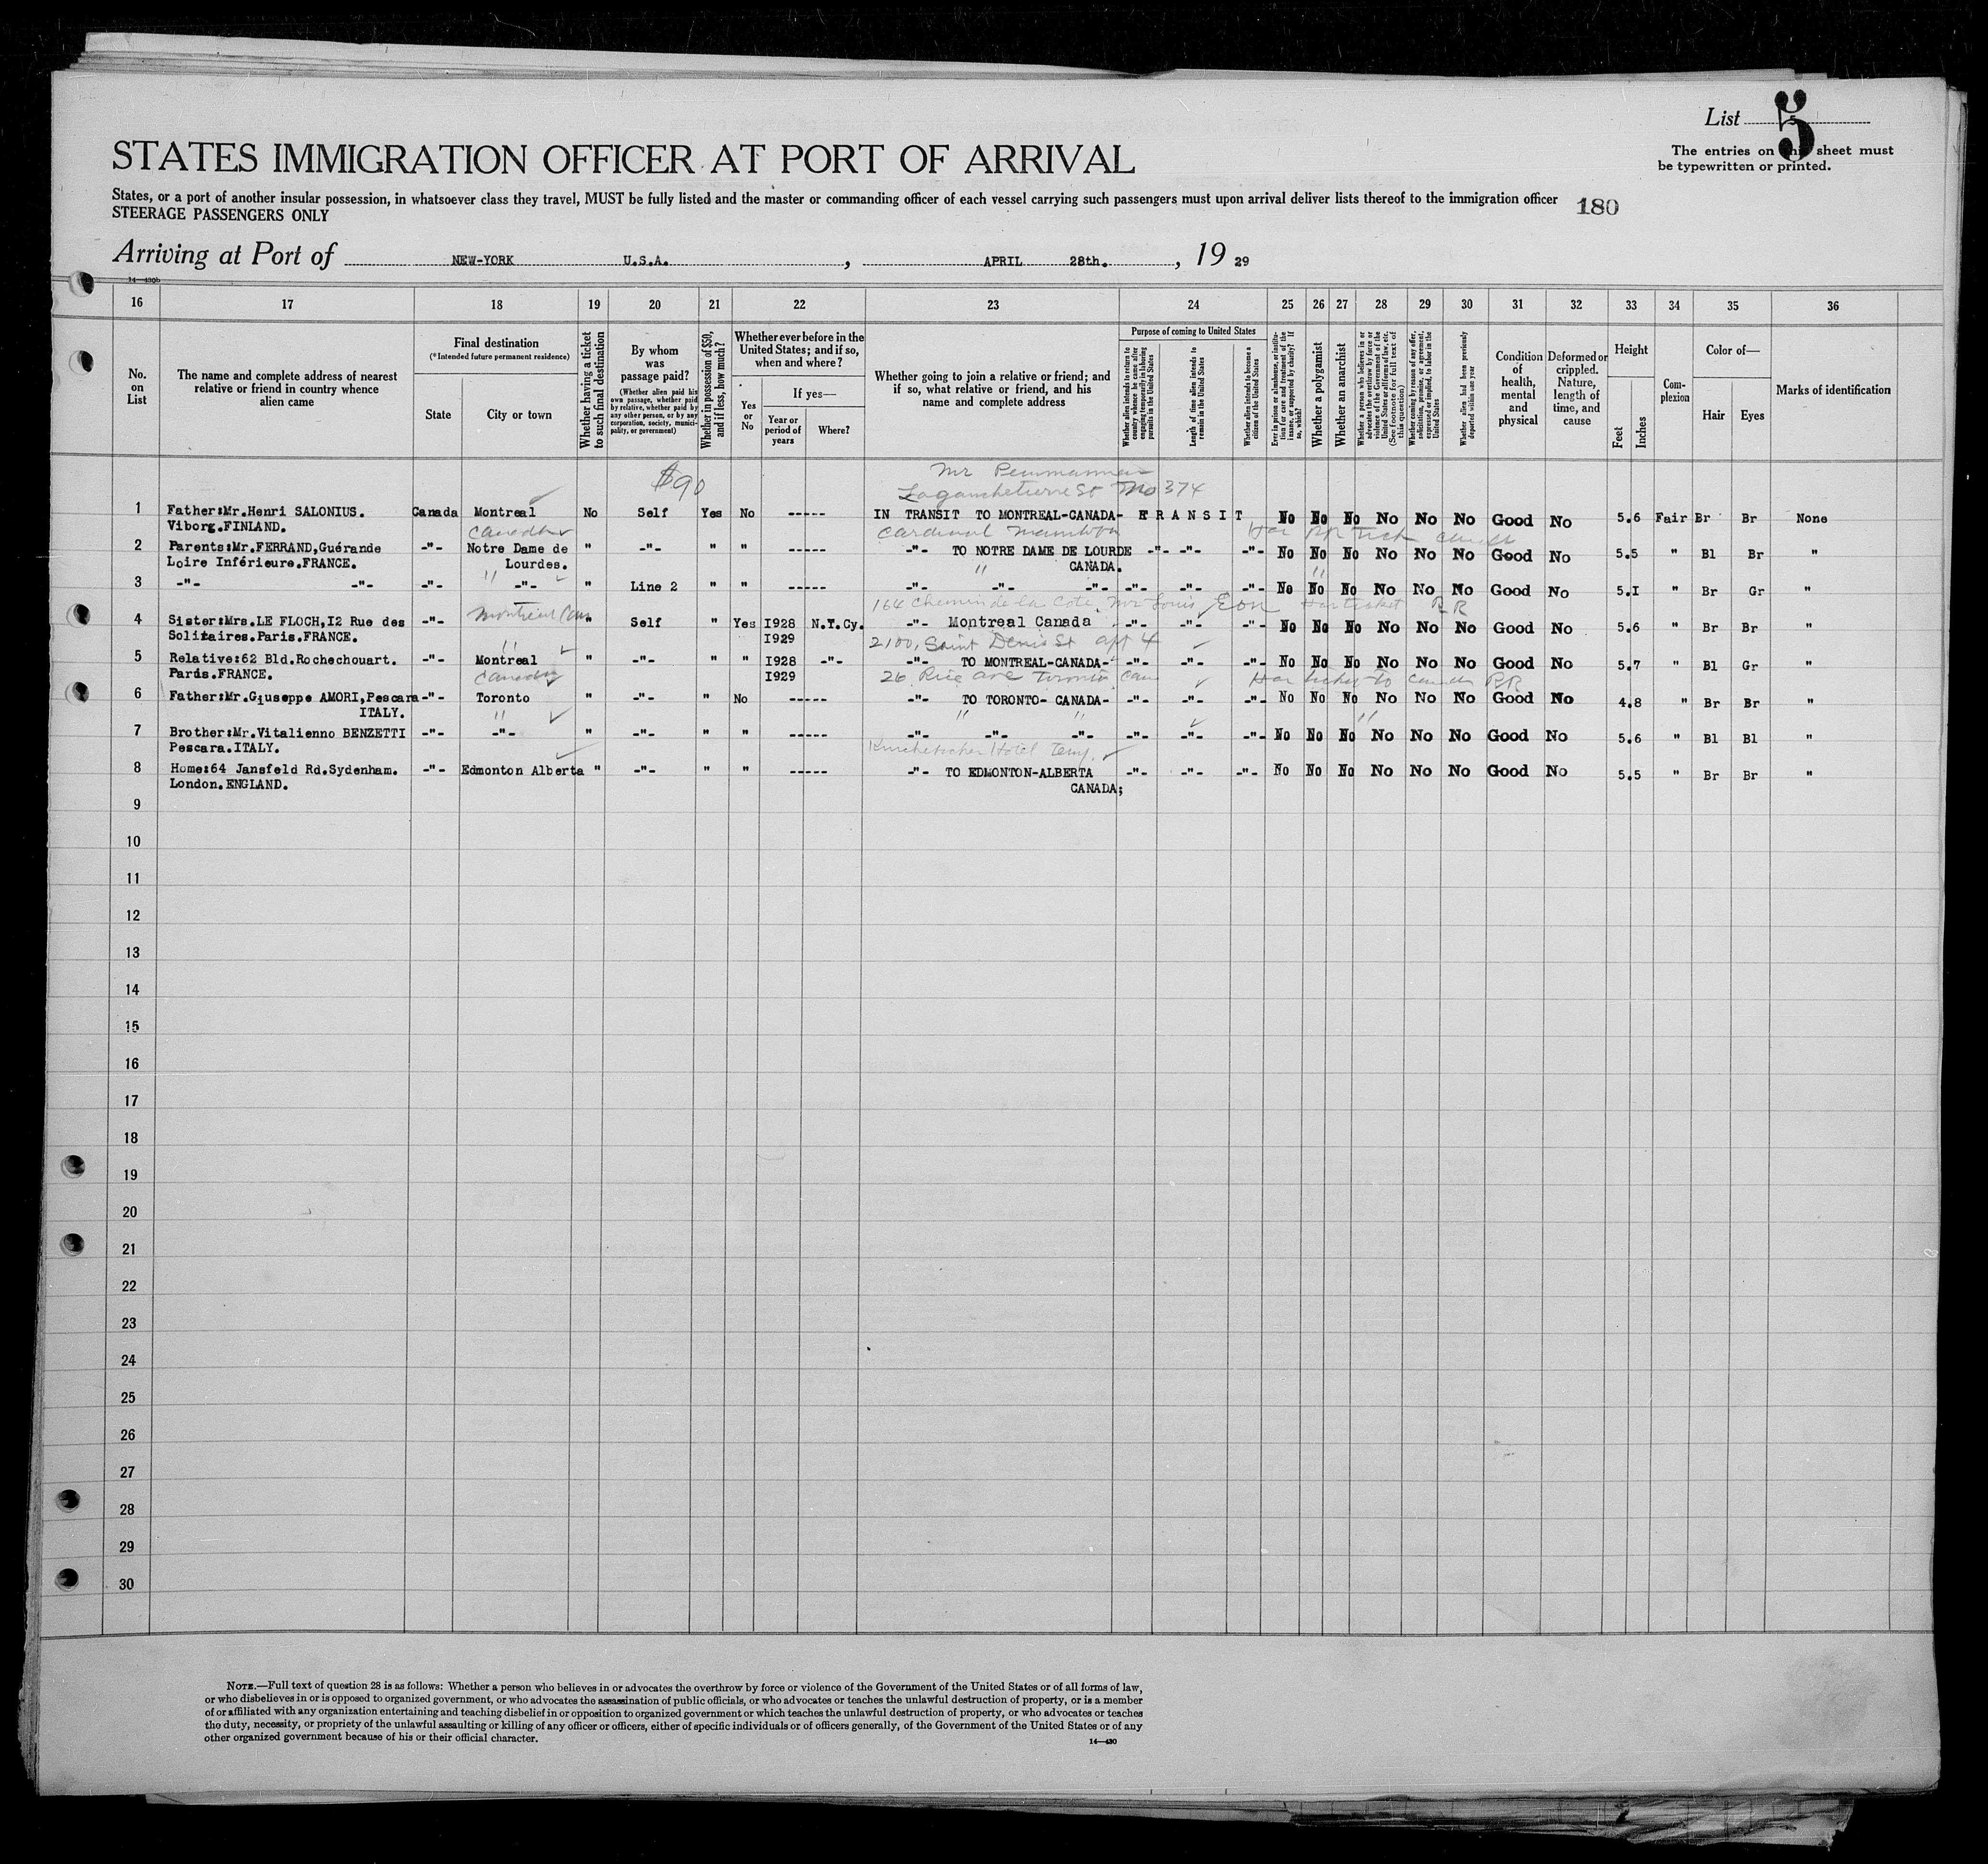 List 5
The entries on this sheet must
be typewritten or printed.
STATES IMMIGRATION OFFICER AT PORT OF ARRIVAL
States, or a port of another insular possession, in whatsoever class they travel, MUST be fully listed and the master or commanding officer of each vessel carrying such passengers must upon arrival deliver lists thereof to the immigration officer
STEERAGE PASSENGERS ONLY
180
Arriving at Port of NEW-YORK U.S.A. , APRIL 28th. , 19 29
14—430b
16 17 18 19 20 21 22 23 24 25 26 27 28 29 30 31 32 33 34 35 36
No. on List
The name and complete address of nearest relative or friend in country whence alien came
Final destination
(*Intended future permanent residence)
State
City or town
Whether having a ticket to such final destination
By whom was passage paid?
(Whether alien paid his own passage, whether paid by relative, whether paid by any other person, or by any corporation, society, municipality, or government)
Whether in possession of $50, and if less, how much?
Whether ever before in the United States; and if so, when and where?
Yes or No
If yes—
Year or period of years
Where?
Whether going to join a relative or friend; and if so, what relative or friend, and his name and complete address
Purpose of coming to United States
Whether alien intends to return to country whence he came after engaging temporarily in laboring pursuits in the United States
Length of time alien intends to remain in the United States
Whether alien intends to become a citizen of the United States
Ever in prison or almshouse, or institution for care and treatment of the insane, or supported by charity? If so, which?
Whether a polygamist
Whether an anarchist
Whether a person who believes in or advocates the overthrow by force or violence of the Government of the United States or all forms of law, etc. (See footnote for full text of this question)
Whether coming by reason of any offer, solicitation, promise, or agreement, expressed or implied, to labor in the United States
Whether alien had been previously deported within one year
Condition of health, mental and physical
Deformed or crippled. Nature, length of time, and cause
Height
Feet
Inches
Complexion
Color of—
Hair
Eyes
Marks of identification
$90 Mr
St No 374
1 Father:Mr.Henri SALONIUS. Canada Montreal No Self Yes No ----- IN TRANSIT TO MONTREAL-CANADA- TRANSIT No No No No No No Good No 5.6 Fair Br Br None
Viborg.FINLAND. Canada Cardinal Manitoba
2 Parents:Mr.FERRAND,Guérande -"- Notre Dame de " -"- " " ----- -"- TO NOTRE DAME DE LOURDE -"- -"- -"- No No No No No No Good No 5.5 " Bl Br "
Loire Inférieure.FRANCE. Lourdes. " CANADA. "
3 -"- -"- -"- -"- " Line 2 " " ----- -"- -"- -"- -"- -"- -"- No No No No No No Good No 5.I " Br Gr "
Montreal Can 164 Chemin de la Cote, Mr Louis Has ticket RR
4 Sister:Mrs.LE FLOCH,I2 Rue des -"- " Self " Yes I928 N.Y.Cy. -"- Montreal Canada -"- -"- -"- No No No No No No Good No 5.6 " Br Br "
Solitaires.Paris.FRANCE. I929 2100, Saint Denis St apt 4
5 Relative:62 Bld.Rochechouart. -"- Montreal " -"- " " I928 -"- -"- TO MONTREAL-CANADA- -"- -"- -"- No No No No No No Good No 5.7 " Bl Gr "
Paris.FRANCE. Canada I929 26 Rice ave Toronto Can Has ticket to Canada RR
6 Father:Mr.Giuseppe AMORI,Pescara -"- Toronto " -"- " No ----- -"- TO TORONTO- CANADA- -"- -"- -"- No No No No No No Good No 4.8 " Br Br "
ITALY. " " " "
7 Brother:Mr.Vitalienno BENZETTI -"- -"- " -"- " " ----- -"- -"- -"- -"- -"- -"- No No No No No No Good No 5.6 " Bl Bl "
Pescara.ITALY. Hotel Temp.
8 Home:64 Jansfeld Rd.Sydenham. -"- Edmonton Alberta " -"- " " ----- -"- TO EDMONTON-ALBERTA -"- -"- -"- No No No No No No Good No 5.5 " Br Br "
London.ENGLAND. CANADA;
9
10
11
12
13
14
15
16
17
18
19
20
21
22
23
24
25
26
27
28
29
30
NOTE.—Full text of question 28 is as follows: Whether a person who believes in or advocates the overthrow by force or violence of the Government of the United States or of all forms of law,
or who disbelieves in or is opposed to organized government, or who advocates the assassination of public officials, or who advocates or teaches the unlawful destruction of property, or is a member
of or affiliated with any organization entertaining and teaching disbelief in or opposition to organized government or which teaches the unlawful destruction of property, or who advocates or teaches
the duty, necessity, or propriety of the unlawful assaulting or killing of any officer or officers, either of specific individuals or of officers generally, of the Government of the United States or of any
other organized government because of his or their official character.
14—430